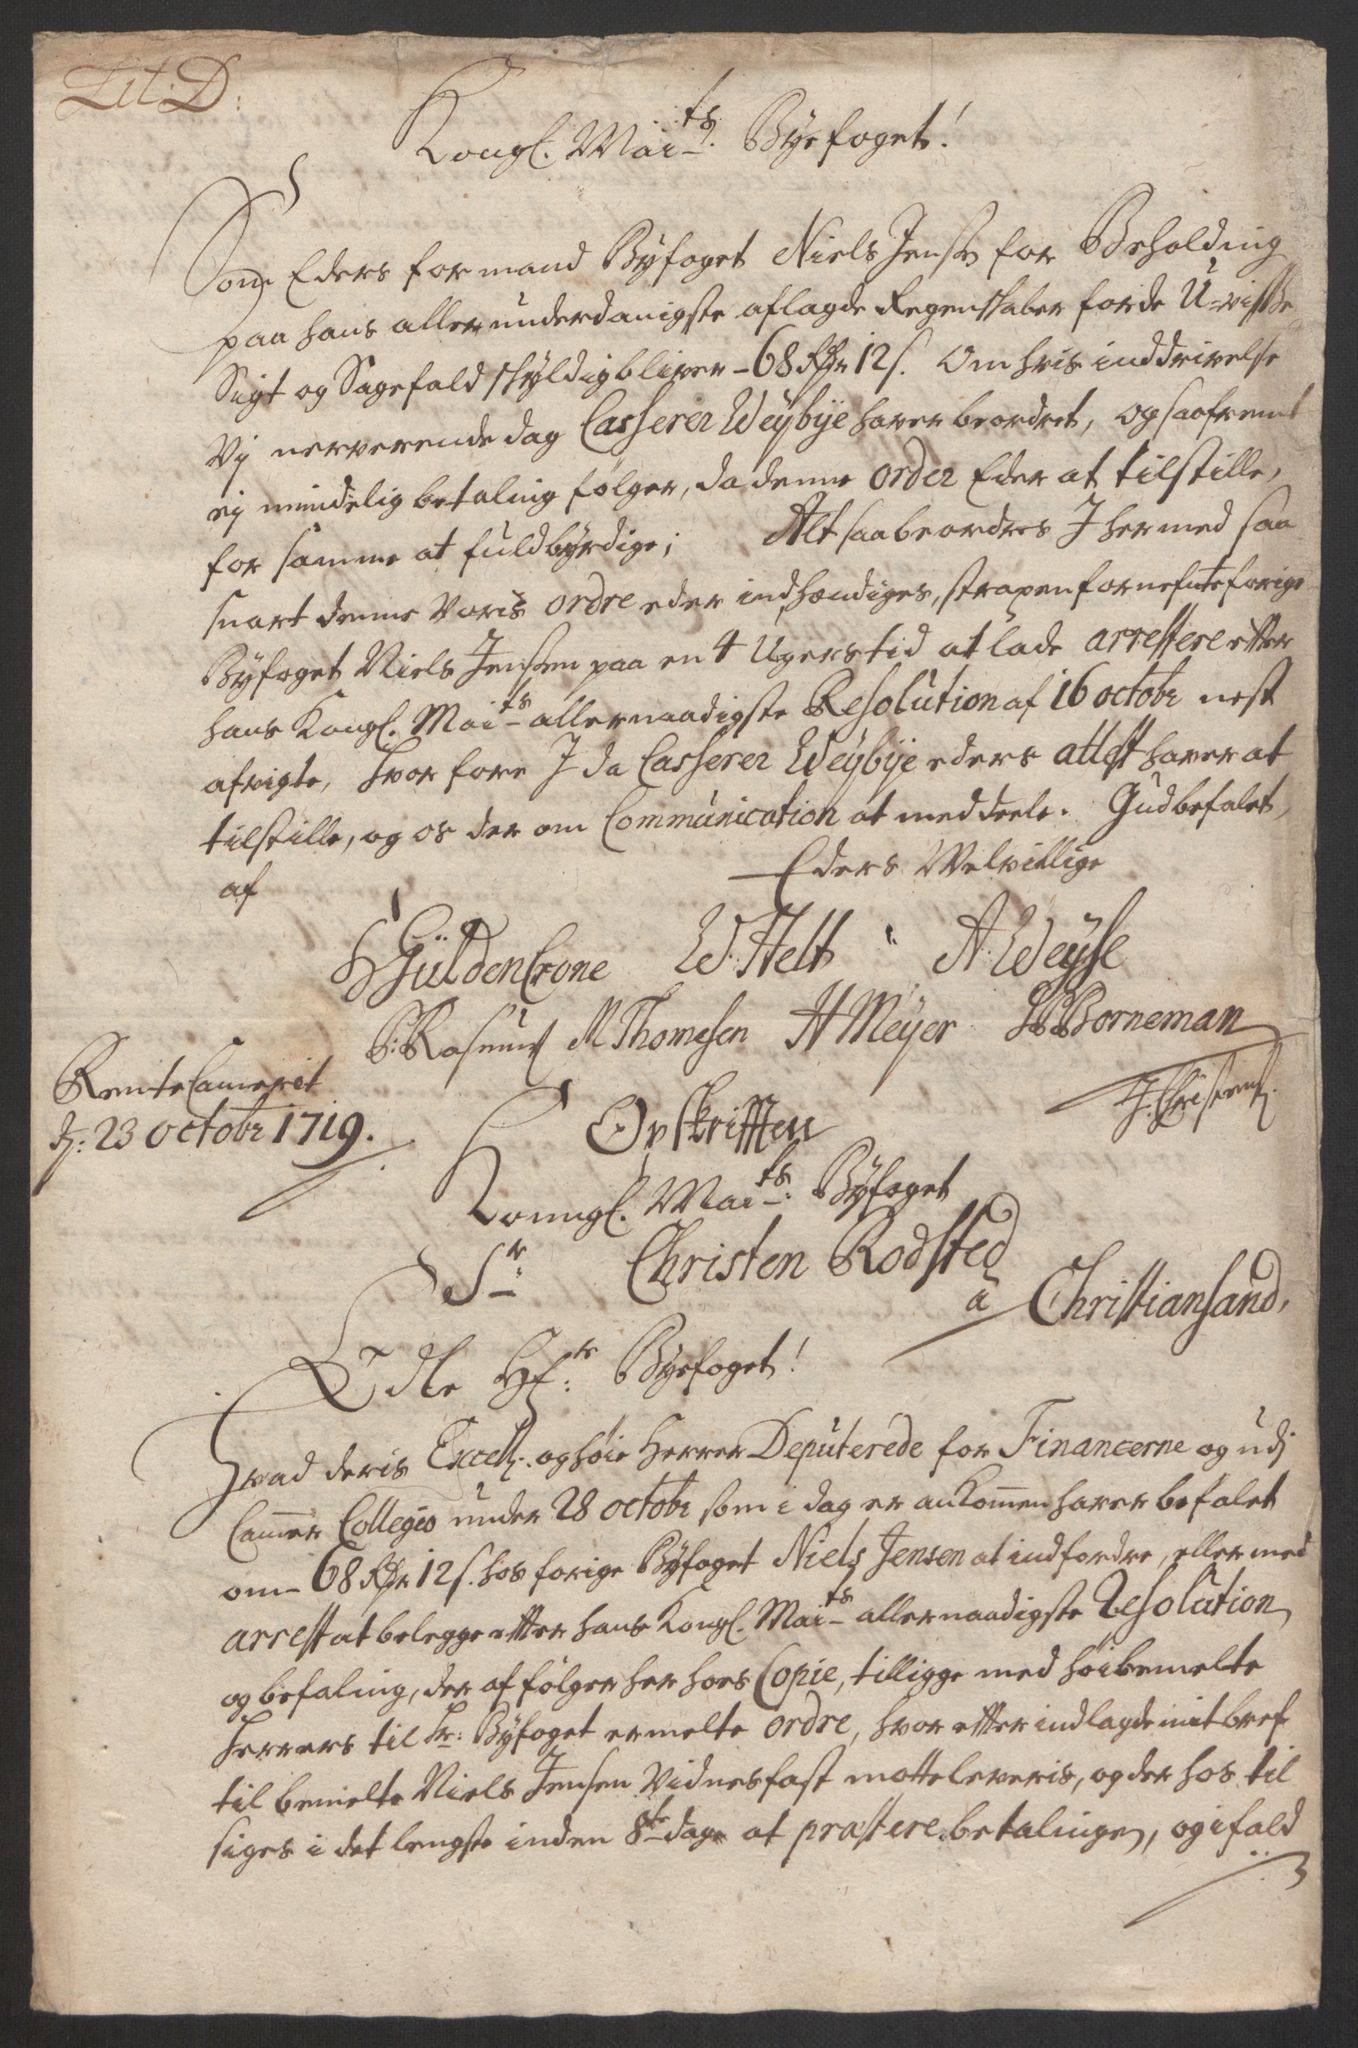 Lit: D:
Kongl. Mai^ts. Byefoget!
Som Eders formand Byfoget Niels Jensen for Beholding
paa hans allerunderdanigste aflagde Regenskaber for de U-visse
Sigt og Sagefald skyldig bliver - 68 Rdr 12 s. Om hvis inddrivelse
Vj nerverende dag Casserer Weybye haver beordret, og saafremt
ej mindelig betaling følger, da denne order Eder at tilstille,
for samme at fuldbyrdige; Alt saa beordres I hermed saa
snart denne Voris ordre eder indhændiges, strax en fornefnte forige
Byfoget Niels Jensen paa en 4 Ugers tid at lade arrestere efter
hans Kongl. Mai^ts allernaadigste Resolution af 16 octobr nest
afvigte, hvorfore I da Casserer Weybye eders attest haver at
tilstille, og os der om Communication at meddeele. Gud befalet,
af Eders Welvillige
GüldenCrone W. Helt A. Weyse
P: Rasmus M Thomesen H Meyer Borneman
RenteCameret J. Christens.
d: 23 octobr 1719.
Opskrifften
Konngl. Mai^ts: Byfoget
S^r: Christen Rodsted
a Christiansand,
Edle Hf^r: Byefoget!
Hvad deris Excell. og høie Herrer Deputerede for Financerne og udj
Camer Collegio under 28 octobr som i dag er ankommen haver befalet
om - 68 Rdr 12 s. hos forige Byfoget Niels Jensen at indfordre, eller med
arrest at belegge efter hans Kongl. Mai^ts allernaadigste Resolution
og befaling, der af følger her hoes Copie, tilligge med høibemelte
Herrers til Hr: Byfoget ermelte ordre, hvor efter indlagde mit bref
til bemelte Niels Jensen Vidnesfast motte leveris, og der hos til
siges i det lengste inden 8^te dage at præstere betalingen, og ifald